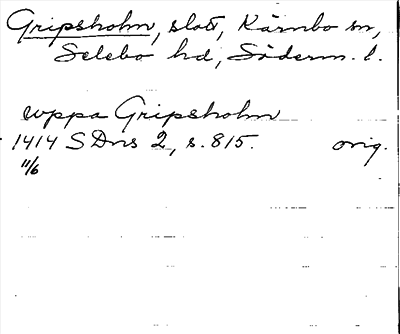 Gripsholm, slott, Kärnbo sn,
Selebo hd, Söderm. l.
uppa Gripsholm
1414 SDns 2, s. 815. orig.
11/6